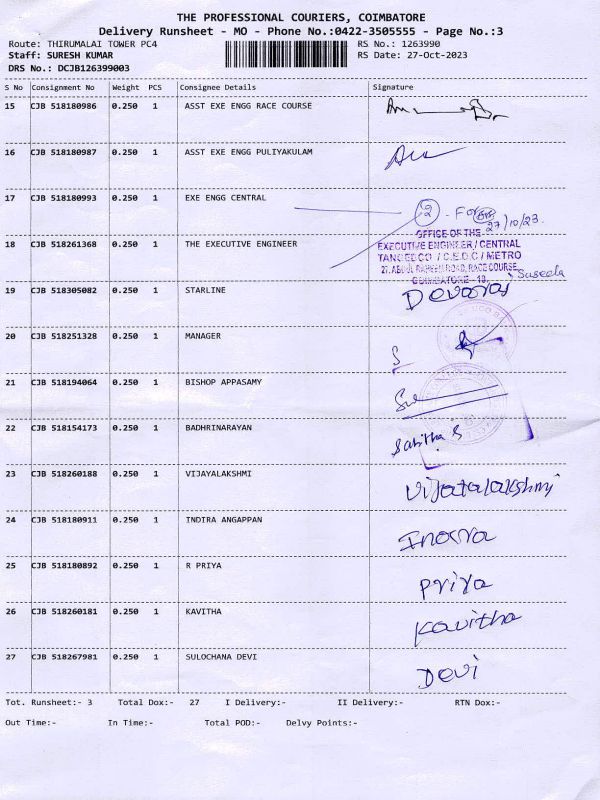 THE PROFESSIONAL COURIERS, COIMBATORE
Delivery Runsheet - MO - Phone No.:0422-3505555 - Page No.:3
Route: THIRUMALAI TOWER PC4 RS No.: 1263990
Staff: SURESH KUMAR RS Date: 27-Oct-2023
DRS No.: DCJB126399003
S No Consignment No Weight PCS Consignee Details Signature
15 CJB 518180986 0.250 1 ASST EXE ENGG RACE COURSE
16 CJB 518180987 0.250 1 ASST EXE ENGG PULIYAKULAM
17 CJB 518180993 0.250 1 EXE ENGG CENTRAL
2 - For
27/10/23
OFFICE OF THE
18 CJB 518261368 0.250 1 THE EXECUTIVE ENGINEER EXECUTIVE ENGINEER / CENTRAL
TANGEDCO / C.E.D.C / METRO
27, ABDUL RAHEEM ROAD, RACE COURSE,
COIMBATORE - 18.
Suseela
19 CJB 518305082 0.250 1 STARLINE Devaraj
20 CJB 518251328 0.250 1 MANAGER
21 CJB 518194064 0.250 1 BISHOP APPASAMY
22 CJB 518154173 0.250 1 BADHRINARAYAN Sabitha S
23 CJB 518260188 0.250 1 VIJAYALAKSHMI Vijatalakshmi
24 CJB 518180911 0.250 1 INDIRA ANGAPPAN
25 CJB 518180892 0.250 1 R PRIYA Priya
26 CJB 518260181 0.250 1 KAVITHA Kavitha
27 CJB 518267981 0.250 1 SULOCHANA DEVI Devi
Tot. Runsheet:- 3 Total Dox:- 27 I Delivery:- II Delivery:- RTN Dox:-
Out Time:- In Time:- Total POD:- Delvy Points:-